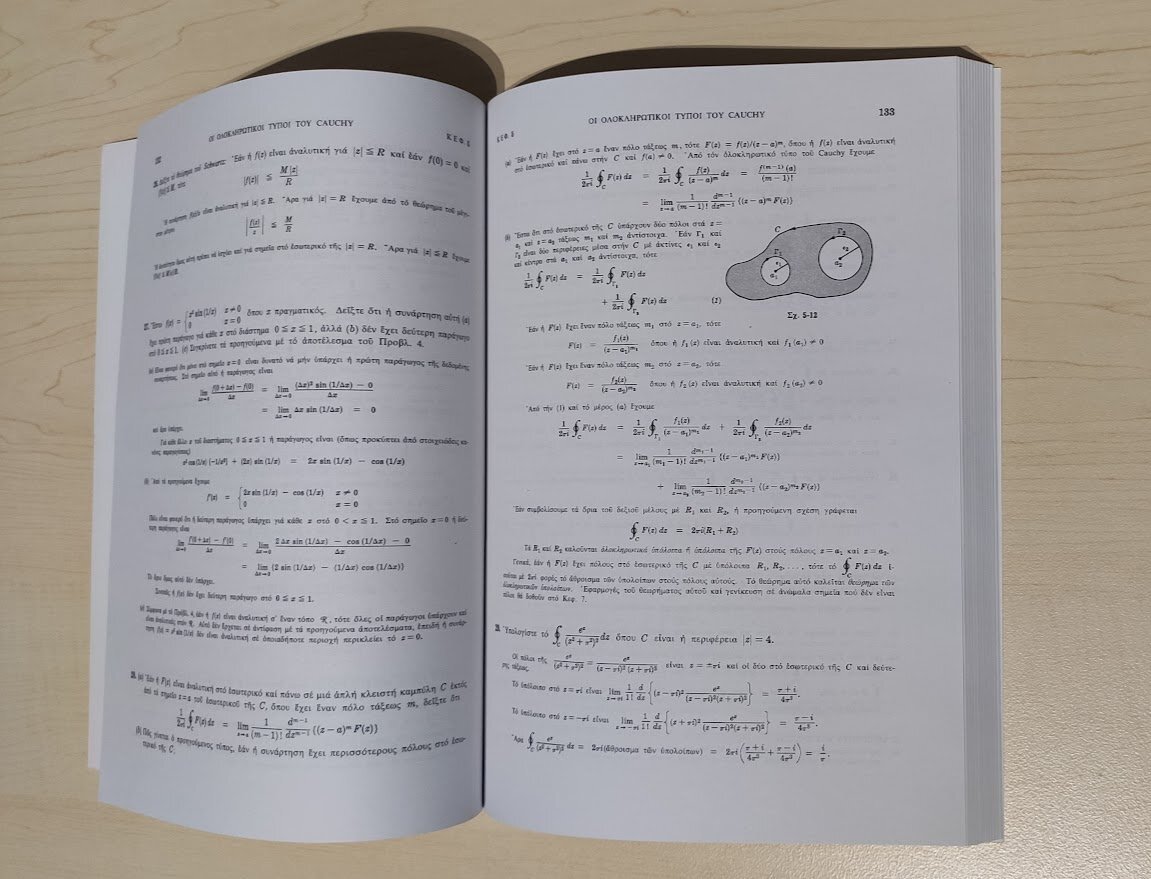 132
ΟΙ ΟΛΟΚΛΗΡΩΤΙΚΟΙ ΤΥΠΟΙ ΤΟΥ CAUCHY
ΚΕΦ. 5
26. Δείξτε τό θεώρημα τοῦ Schwartz: Ἐάν ἡ f(z) εἶναι ἀναλυτική γιά |z| ≦ R καί ἐάν f(0) = 0 καί
|f(z)| ≦ M, τότε
|f(z)| ≦ M|z|/R
Ἡ συνάρτηση f(z)/z εἶναι ἀναλυτική γιά |z| ≦ R. Ἄρα γιά |z| = R ἔχουμε ἀπό τό θεώρημα τοῦ μέγι-
|f(z)/z| ≦ M/R
Ἡ ἀνισότητα ὅμως αὐτή πρέπει νά ἰσχύει καί γιά σημεῖα στό ἐσωτερικό τῆς |z| = R. Ἄρα γιά |z| ≦ R ἔχουμε
|f(z)| ≦ M|z|/R.
27. Ἔστω f(x) = { x² sin (1/x) x ≠ 0
0 x = 0
ὅπου x πραγματικός. Δείξτε ὅτι ἡ συνάρτηση αὐτή (a)
ἔχει πρώτη παράγωγο γιά κάθε x στό διάστημα 0 ≦ x ≦ 1, ἀλλά (b) δέν ἔχει δεύτερη παράγωγο
στό 0 ≦ x ≦ 1. (c) Συγκρίνετε τά προηγούμενα μέ τό ἀποτέλεσμα τοῦ Προβλ. 4.
(a) Εἶναι φανερό ὅτι μόνο στό σημεῖο x = 0 εἶναι δυνατό νά μήν ὑπάρχει ἡ πρώτη παράγωγος τῆς δεδομένης
συναρτήσεως. Στό σημεῖο αὐτό ἡ παράγωγος εἶναι
lim Δx→0 (f(0 + Δx) − f(0))/Δx = lim Δx→0 ((Δx)² sin (1/Δx) − 0)/Δx
= lim Δx→0 Δx sin (1/Δx) = 0
καί ἄρα ὑπάρχει.
Γιά κάθε ἄλλο x τοῦ διαστήματος 0 ≦ x ≦ 1 ἡ παράγωγος εἶναι (ὅπως προκύπτει ἀπό στοιχειώδεις κα-
νόνες παραγωγίσεως)
x² cos (1/x) {−1/x²} + (2x) sin (1/x) = 2x sin (1/x) − cos (1/x)
(b) Ἀπό τά προηγούμενα ἔχουμε
f'(x) = { 2x sin (1/x) − cos (1/x) x ≠ 0
0 x = 0
Πάλι εἶναι φανερό ὅτι ἡ δεύτερη παράγωγος ὑπάρχει γιά κάθε x στό 0 < x ≦ 1. Στό σημεῖο x = 0 ἡ δεύ-
τερη παράγωγος εἶναι
lim Δx→0 (f'(0 + Δx) − f'(0))/Δx = lim Δx→0 (2 Δx sin (1/Δx) − cos (1/Δx) − 0)/Δx
= lim Δx→0 {2 sin (1/Δx) − (1/Δx) cos (1/Δx)}
Τό ὅριο ὅμως αὐτό δέν ὑπάρχει.
Συνεπῶς ἡ f(x) δέν ἔχει δεύτερη παράγωγο στό 0 ≦ x ≦ 1.
(c) Σύμφωνα μέ τό Προβλ. 4, ἐάν ἡ f(z) εἶναι ἀναλυτική σ' ἕναν τόπο ℛ, τότε ὅλες οἱ παράγωγοι ὑπάρχουν καί
εἶναι ἀναλυτικές στόν ℛ. Αὐτό δέν ἔρχεται σέ ἀντίφαση μέ τά προηγούμενα ἀποτελέσματα, ἐπειδή ἡ συνάρ-
τηση f(z) = z² sin (1/z) δέν εἶναι ἀναλυτική σέ ὁποιαδήποτε περιοχή περικλείει τό z = 0.
28. (a) Ἐάν ἡ F(z) εἶναι ἀναλυτική στό ἐσωτερικό καί πάνω σέ μιά ἁπλή κλειστή καμπύλη C ἐκτός
ἀπό τό σημεῖο z = a τοῦ ἐσωτερικοῦ τῆς C, ὅπου ἔχει ἕναν πόλο τάξεως m, δεῖξτε ὅτι
1/2πi ∮C F(z) dz = lim z→a 1/(m − 1)! d^(m−1)/dz^(m−1) {(z − a)^m F(z)}
(b) Πῶς γίνεται ὁ προηγούμενος τύπος, ἐάν ἡ συνάρτηση ἔχει περισσότερους πόλους στό ἐσω-
τερικό τῆς C.
ΚΕΦ. 5
ΟΙ ΟΛΟΚΛΗΡΩΤΙΚΟΙ ΤΥΠΟΙ ΤΟΥ CAUCHY
133
(a) Ἐάν ἡ F(z) ἔχει στό z = a ἕναν πόλο τάξεως m, τότε F(z) = f(z)/(z − a)^m, ὅπου ἡ f(z) εἶναι ἀναλυτική
στό ἐσωτερικό καί πάνω στήν C καί f(a) ≠ 0. Ἀπό τόν ὁλοκληρωτικό τύπο τοῦ Cauchy ἔχουμε
1/2πi ∮C F(z) dz = 1/2πi ∮C f(z)/(z − a)^m dz = f^(m−1)(a)/(m − 1)!
= lim z→a 1/(m − 1)! d^(m−1)/dz^(m−1) {(z − a)^m F(z)}
(b) Ἔστω ὅτι στό ἐσωτερικό τῆς C ὑπάρχουν δύο πόλοι στά z =
a₁ καί z = a₂ τάξεως m₁ καί m₂ ἀντίστοιχα. Ἐάν Γ₁ καί
Γ₂ εἶναι δύο περιφέρειες μέσα στήν C μέ ἀκτίνες ε₁ καί ε₂
καί κέντρα στά a₁ καί a₂ ἀντίστοιχα, τότε
1/2πi ∮C F(z) dz = 1/2πi ∮Γ₁ F(z) dz
+ 1/2πi ∮Γ₂ F(z) dz (1)
C
Γ₁
ε₁
a₁
Γ₂
ε₂
a₂
Σχ. 5-12
Ἐάν ἡ F(z) ἔχει ἕναν πόλο τάξεως m₁ στό z = a₁, τότε
F(z) = f₁(z)/(z − a₁)^m₁ ὅπου ἡ f₁(z) εἶναι ἀναλυτική καί f₁(a₁) ≠ 0
Ἐάν ἡ F(z) ἔχει ἕναν πόλο τάξεως m₂ στό z = a₂, τότε
F(z) = f₂(z)/(z − a₂)^m₂ ὅπου ἡ f₂(z) εἶναι ἀναλυτική καί f₂(a₂) ≠ 0
Ἀπό τήν (1) καί τό μέρος (a) ἔχουμε
1/2πi ∮C F(z) dz = 1/2πi ∮Γ₁ f₁(z)/(z − a₁)^m₁ dz + 1/2πi ∮Γ₂ f₂(z)/(z − a₂)^m₂ dz
= lim z→a₁ 1/(m₁ − 1)! d^(m₁−1)/dz^(m₁−1) {(z − a₁)^m₁ F(z)}
+ lim z→a₂ 1/(m₂ − 1)! d^(m₂−1)/dz^(m₂−1) {(z − a₂)^m₂ F(z)}
Ἐάν συμβολίσουμε τά ὅρια τοῦ δεξιοῦ μέλους μέ R₁ καί R₂, ἡ προηγούμενη σχέση γράφεται
∮C F(z) dz = 2πi(R₁ + R₂)
Τά R₁ καί R₂ καλοῦνται ὁλοκληρωτικά ὑπόλοιπα ἤ ὑπόλοιπα τῆς F(z) στούς πόλους z = a₁ καί z = a₂.
Γενικά, ἐάν ἡ F(z) ἔχει πόλους στό ἐσωτερικό τῆς C μέ ὑπόλοιπα R₁, R₂, . . . , τότε τό ∮C F(z) dz ἰ-
σοῦται μέ 2πi φορές τό ἄθροισμα τῶν ὑπολοίπων στούς πόλους αὐτούς. Τό θεώρημα αὐτό καλεῖται θεώρημα τῶν
ὁλοκληρωτικῶν ὑπολοίπων. Ἐφαρμογές τοῦ θεωρήματος αὐτοῦ καί γενίκευση σέ ἀνώμαλα σημεῖα πού δέν εἶναι
πόλοι θά δοθοῦν στό Κεφ. 7.
29. Ὑπολογίστε τό ∮C e^z/(z² + π²)² dz ὅπου C εἶναι ἡ περιφέρεια |z| = 4.
Οἱ πόλοι τῆς e^z/(z² + π²)² = e^z/(z − πi)²(z + πi)² εἶναι z = ±πi καί οἱ δύο στό ἐσωτερικό τῆς C καί δεύτε-
ρης τάξεως.
Τό ὑπόλοιπο στό z = πi εἶναι lim z→πi 1/1! d/dz {(z − πi)² e^z/(z − πi)²(z + πi)²} = (π + i)/4π³.
Τό ὑπόλοιπο στό z = −πi εἶναι lim z→−πi 1/1! d/dz {(z + πi)² e^z/(z − πi)²(z + πi)²} = (π − i)/4π³.
Ἄρα ∮C e^z/(z² + π²)² dz = 2πi(ἄθροισμα τῶν ὑπολοίπων) = 2πi((π + i)/4π³ + (π − i)/4π³) = i/π.